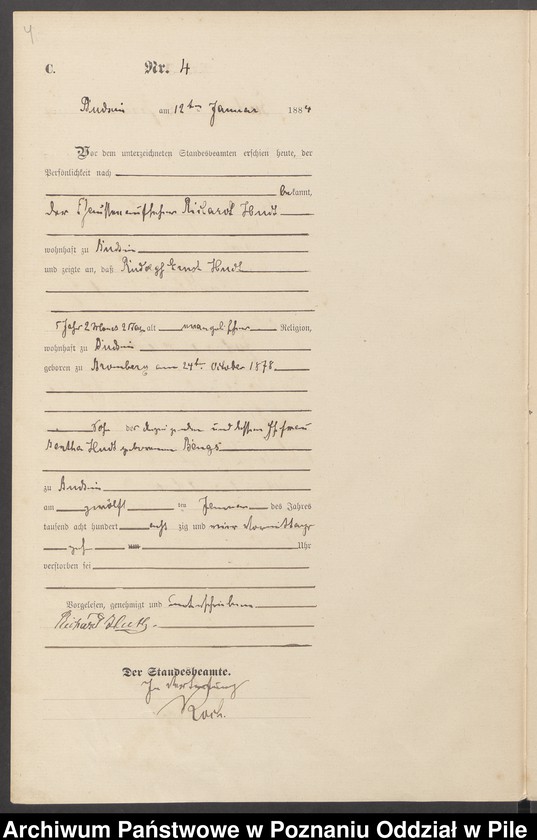 4.
C. Nr. 4
Budsin am 12ten Januar 1884
Vor dem unterzeichneten Standesbeamten erschien heute, der
Persönlichkeit nach
bekannt,
der Chausseeaufseher Richard
wohnhaft zu Budsin
und zeigte an, daß Rudolph Ernst
5 Jahr 2 Monat alt evangelischer Religion,
wohnhaft zu Budsin
geboren zu Bromberg am 24t. October 1878
Sohn des Anzeigenden und dessen Ehefrau
Bertha geborenen
zu Budsin
am zwölft ten Januar des Jahres
tausend acht hundert acht zig und vier Vormittags
Uhr
verstorben sei
Vorgelesen, genehmigt und unterschrieben
Richard
Der Standesbeamte.
In Vertretung
Koch.
Archiwum Państwowe w Poznaniu Oddział w Pile